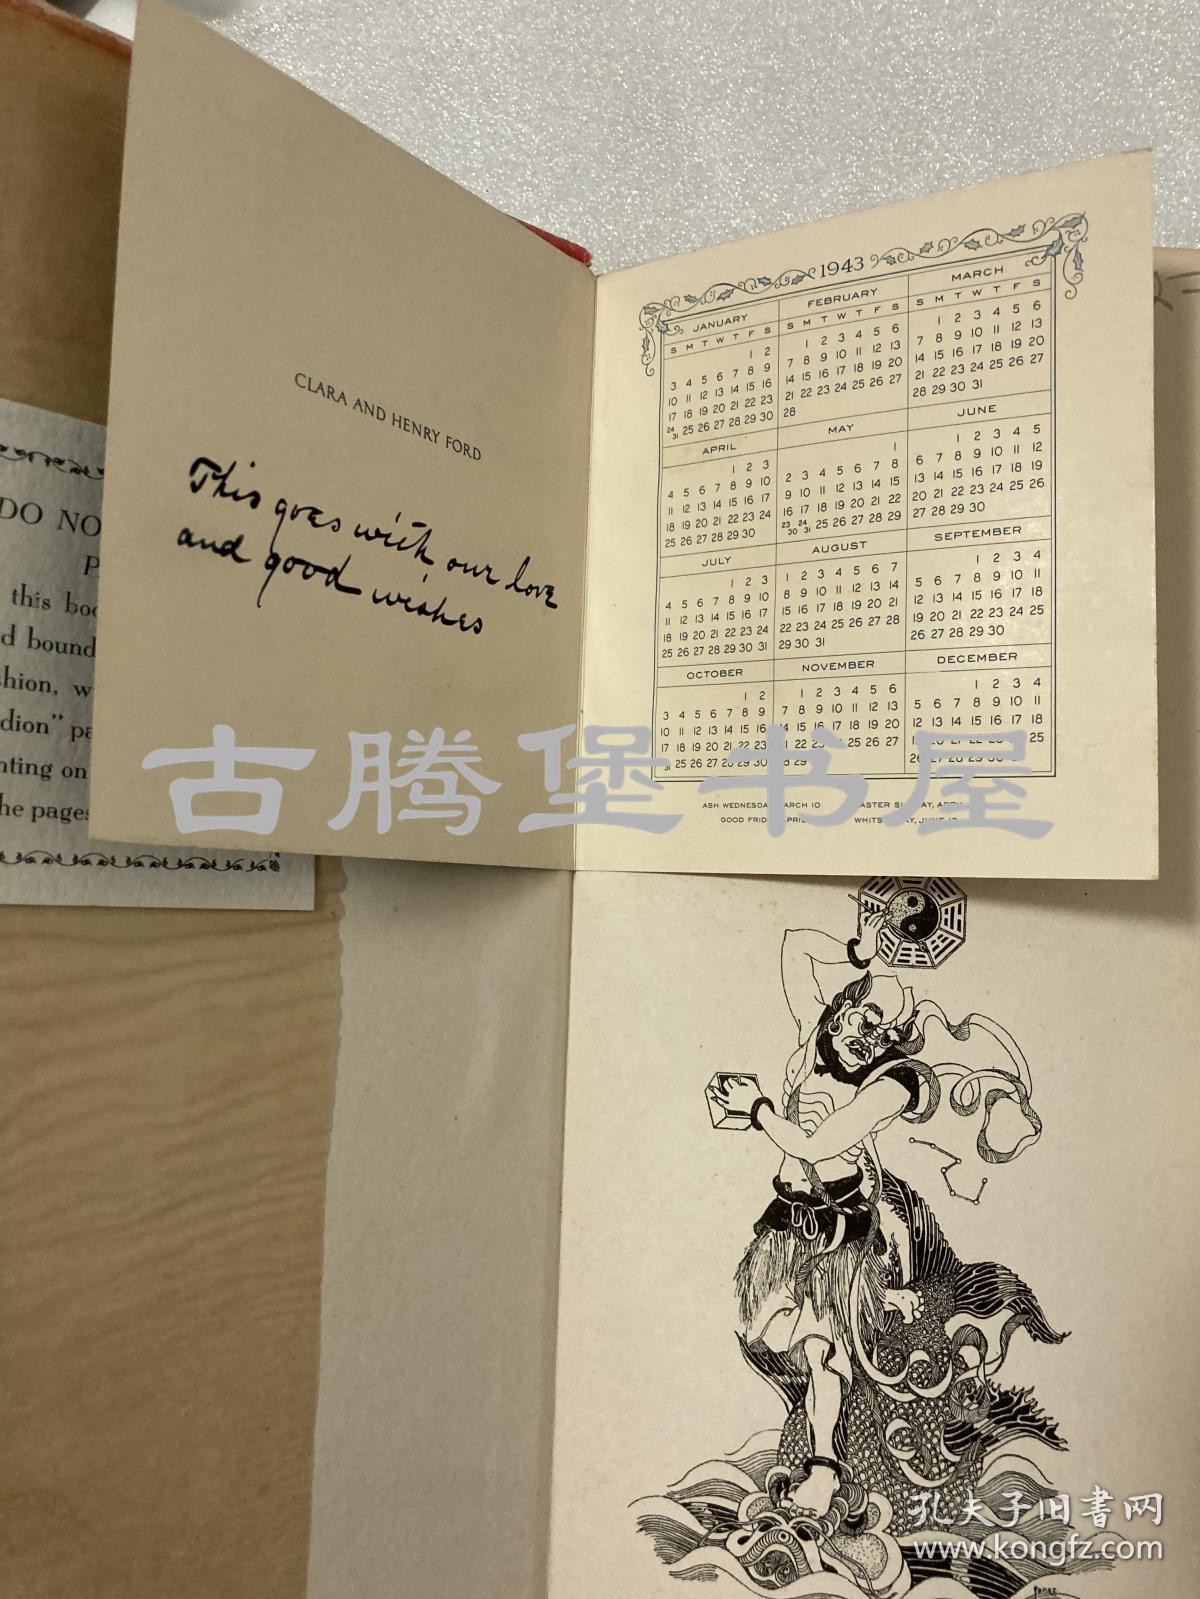 CLARA AND HENRY FORD
This goes with our love
and good wishes
DO NO
P
this boo
d bound
shion, w
dion" pa
nting on
he pages
1943
JANUARY
S M T W T F S
1 2
3 4 5 6 7 8 9
10 11 12 13 14 15 16
17 18 19 20 21 22 23
24 31 25 26 27 28 29 30
FEBRUARY
S M T W T F S
1 2 3 4 5 6
7 8 9 10 11 12 13
14 15 16 17 18 19 20
21 22 23 24 25 26 27
28
MARCH
S M T W T F S
1 2 3 4 5 6
7 8 9 10 11 12 13
14 15 16 17 18 19 20
21 22 23 24 25 26 27
28 29 30 31
APRIL
1 2 3
4 5 6 7 8 9 10
11 12 13 14 15 16 17
18 19 20 21 22 23 24
25 26 27 28 29 30
MAY
1
2 3 4 5 6 7 8
9 10 11 12 13 14 15
16 17 18 19 20 21 22
23 30 24 31 25 26 27 28 29
JUNE
1 2 3 4 5
6 7 8 9 10 11 12
13 14 15 16 17 18 19
20 21 22 23 24 25 26
27 28 29 30
JULY
1 2 3
4 5 6 7 8 9 10
11 12 13 14 15 16 17
18 19 20 21 22 23 24
25 26 27 28 29 30 31
AUGUST
1 2 3 4 5 6 7
8 9 10 11 12 13 14
15 16 17 18 19 20 21
22 23 24 25 26 27 28
29 30 31
SEPTEMBER
1 2 3 4
5 6 7 8 9 10 11
12 13 14 15 16 17 18
19 20 21 22 23 24 25
26 27 28 29 30
OCTOBER
1 2
3 4 5 6 7 8 9
10 11 12 13 14 15 16
17 18 19 20 21 22 23
31 25 26 27 28 29 30
NOVEMBER
1 2 3 4 5 6
7 8 9 10 11 12 13
14 15 16 17 18 19 20
21 22 23 24 25 26 27
28 29
DECEMBER
1 2 3 4
5 6 7 8 9 10 11
12 13 14 15 16 17 18
19 20 21 22 23 24 25
26 27 28 29 30
ASH WEDNESDAY MARCH 10
GOOD FRIDAY APRIL
EASTER SUNDAY, APRIL
WHITSUNDAY, JUNE 13
古腾堡书屋
孔夫子旧书网
www.kongfz.com